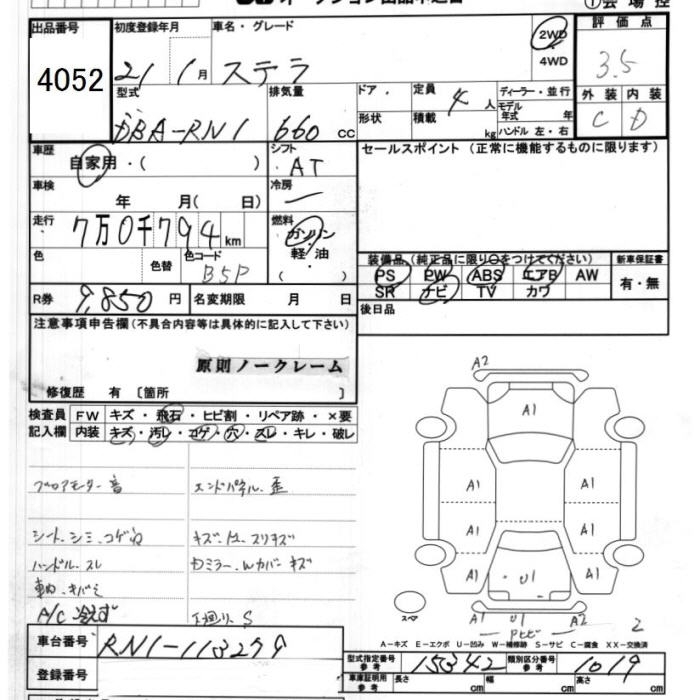 出品番号 4052
初度登録年月 21 1月
車名・グレード ステラ
2WD
4WD
評価点 3.5
外装 内装
C D
型式 DBA-RN1
排気量 660 cc
ドア・形状
定員 4人
積載 kg
ディーラー・並行
モデル年式 年
ハンドル 左・右
車歴 自家用・( )
シフト AT
セールスポイント (正常に機能するものに限ります)
車検 年 月( 日)
冷房
走行 7万0千794km
燃料 ガソリン
軽・油
( )
色 色替 色コード B5P
装備品 (純正品に限り○をつけてください)
新車保証書
PS PW ABS エアB AW
有・無
SR ナビ TV カワ
R券 9,850円
名変期限 月 日
後日品
注意事項申告欄 (不具合内容等は具体的に記入して下さい)
原則ノークレーム
修復歴 有 〔箇所 〕
検査員 FW キズ・飛石・ヒビ割・リペア跡・×要
記入欄 内装 キズ・汚レ・コゲ・穴・スレ・キレ・破レ
ブロアモーター音
エンドパネル歪
シート、シミ、コゲ穴
ハンドル、スレ
Dミラー、Wカバーキズ
A/C 冷えず
下廻り、S
A2
A1
A1 A1
A1 A1
A1 A1
U1
スペア
A1 U1 A2
2
A－キズ E－エクボ U－凹み W－補修跡 S－サビ C－腐食 XX－交換済
車台番号 RN1-113279
型式指定番号 参考 15342
類別区分番号 参考 1019
登録番号
車庫証明用 参考
長さ 幅 高さ